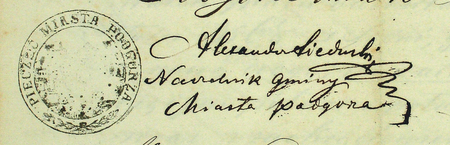 PIECZĘĆ MIASTA PODGÓRZA
Alexander
Naczelnik gminy
Miasta podgórza